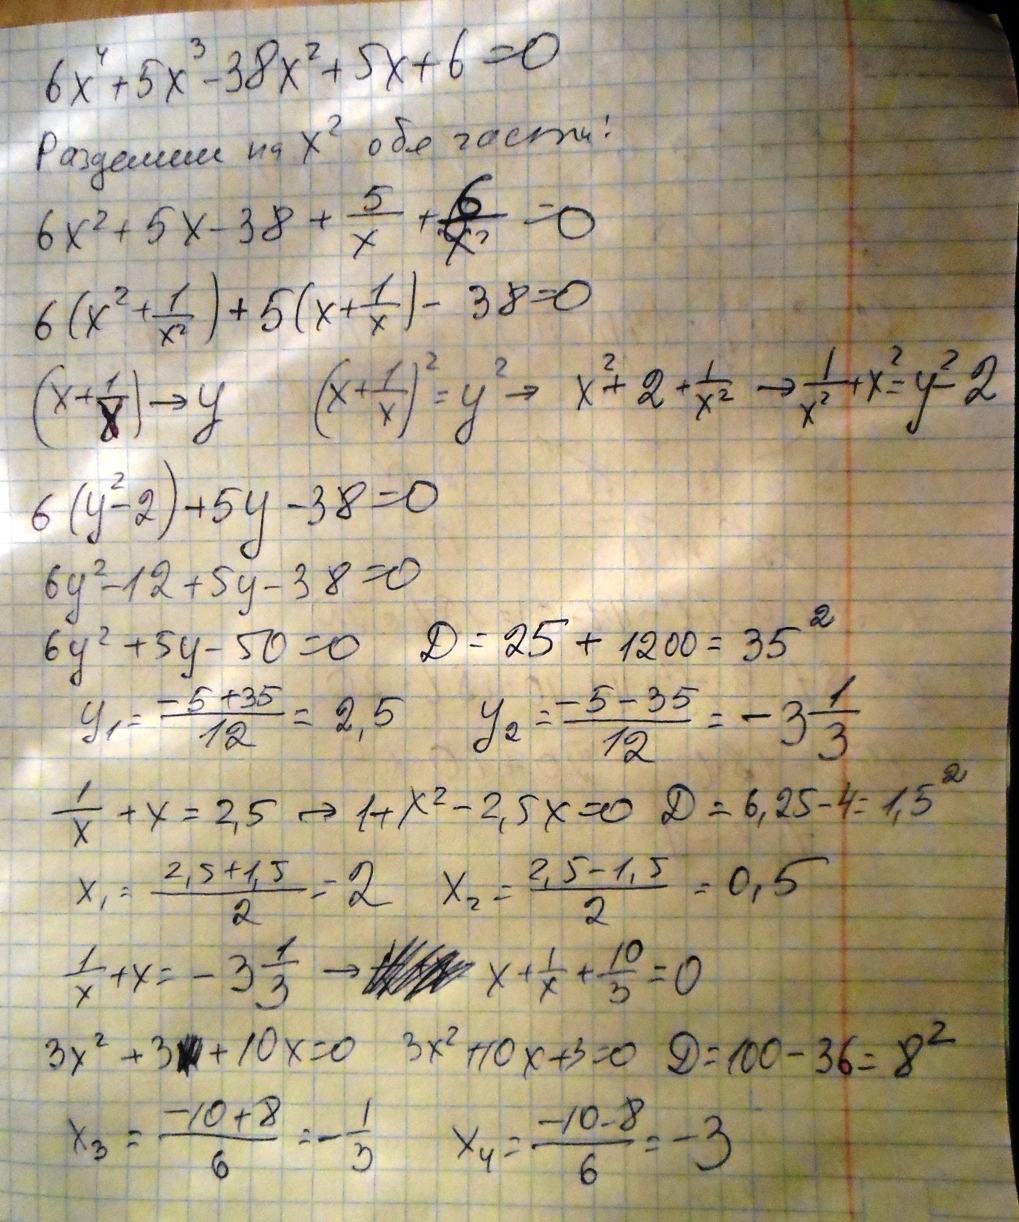 6x⁴+5x³-38x²+5x+6=0
Разделим на x² обе части:
6x²+5x-38+5/x+6/x²=0
6(x²+1/x²)+5(x+1/x)-38=0
(x+1/x)→y (x+1/x)²=y²→ x²+2+1/x² →1/x²+x²=y²-2
6(y²-2)+5y-38=0
6y²-12+5y-38=0
6y²+5y-50=0 D=25+1200=35²
y₁=(-5+35)/12=2,5 y₂=(-5-35)/12=-3 1/3
1/x+x=2,5→1+x²-2,5x=0 D=6,25-4=1,5²
x₁=(2,5+1,5)/2=2 x₂=(2,5-1,5)/2=0,5
1/x+x=-3 1/3→ x+1/x+10/3=0
3x²+3+10x=0 3x²+10x+3=0 D=100-36=8²
x₃=(-10+8)/6=-1/3 x₄=(-10-8)/6=-3